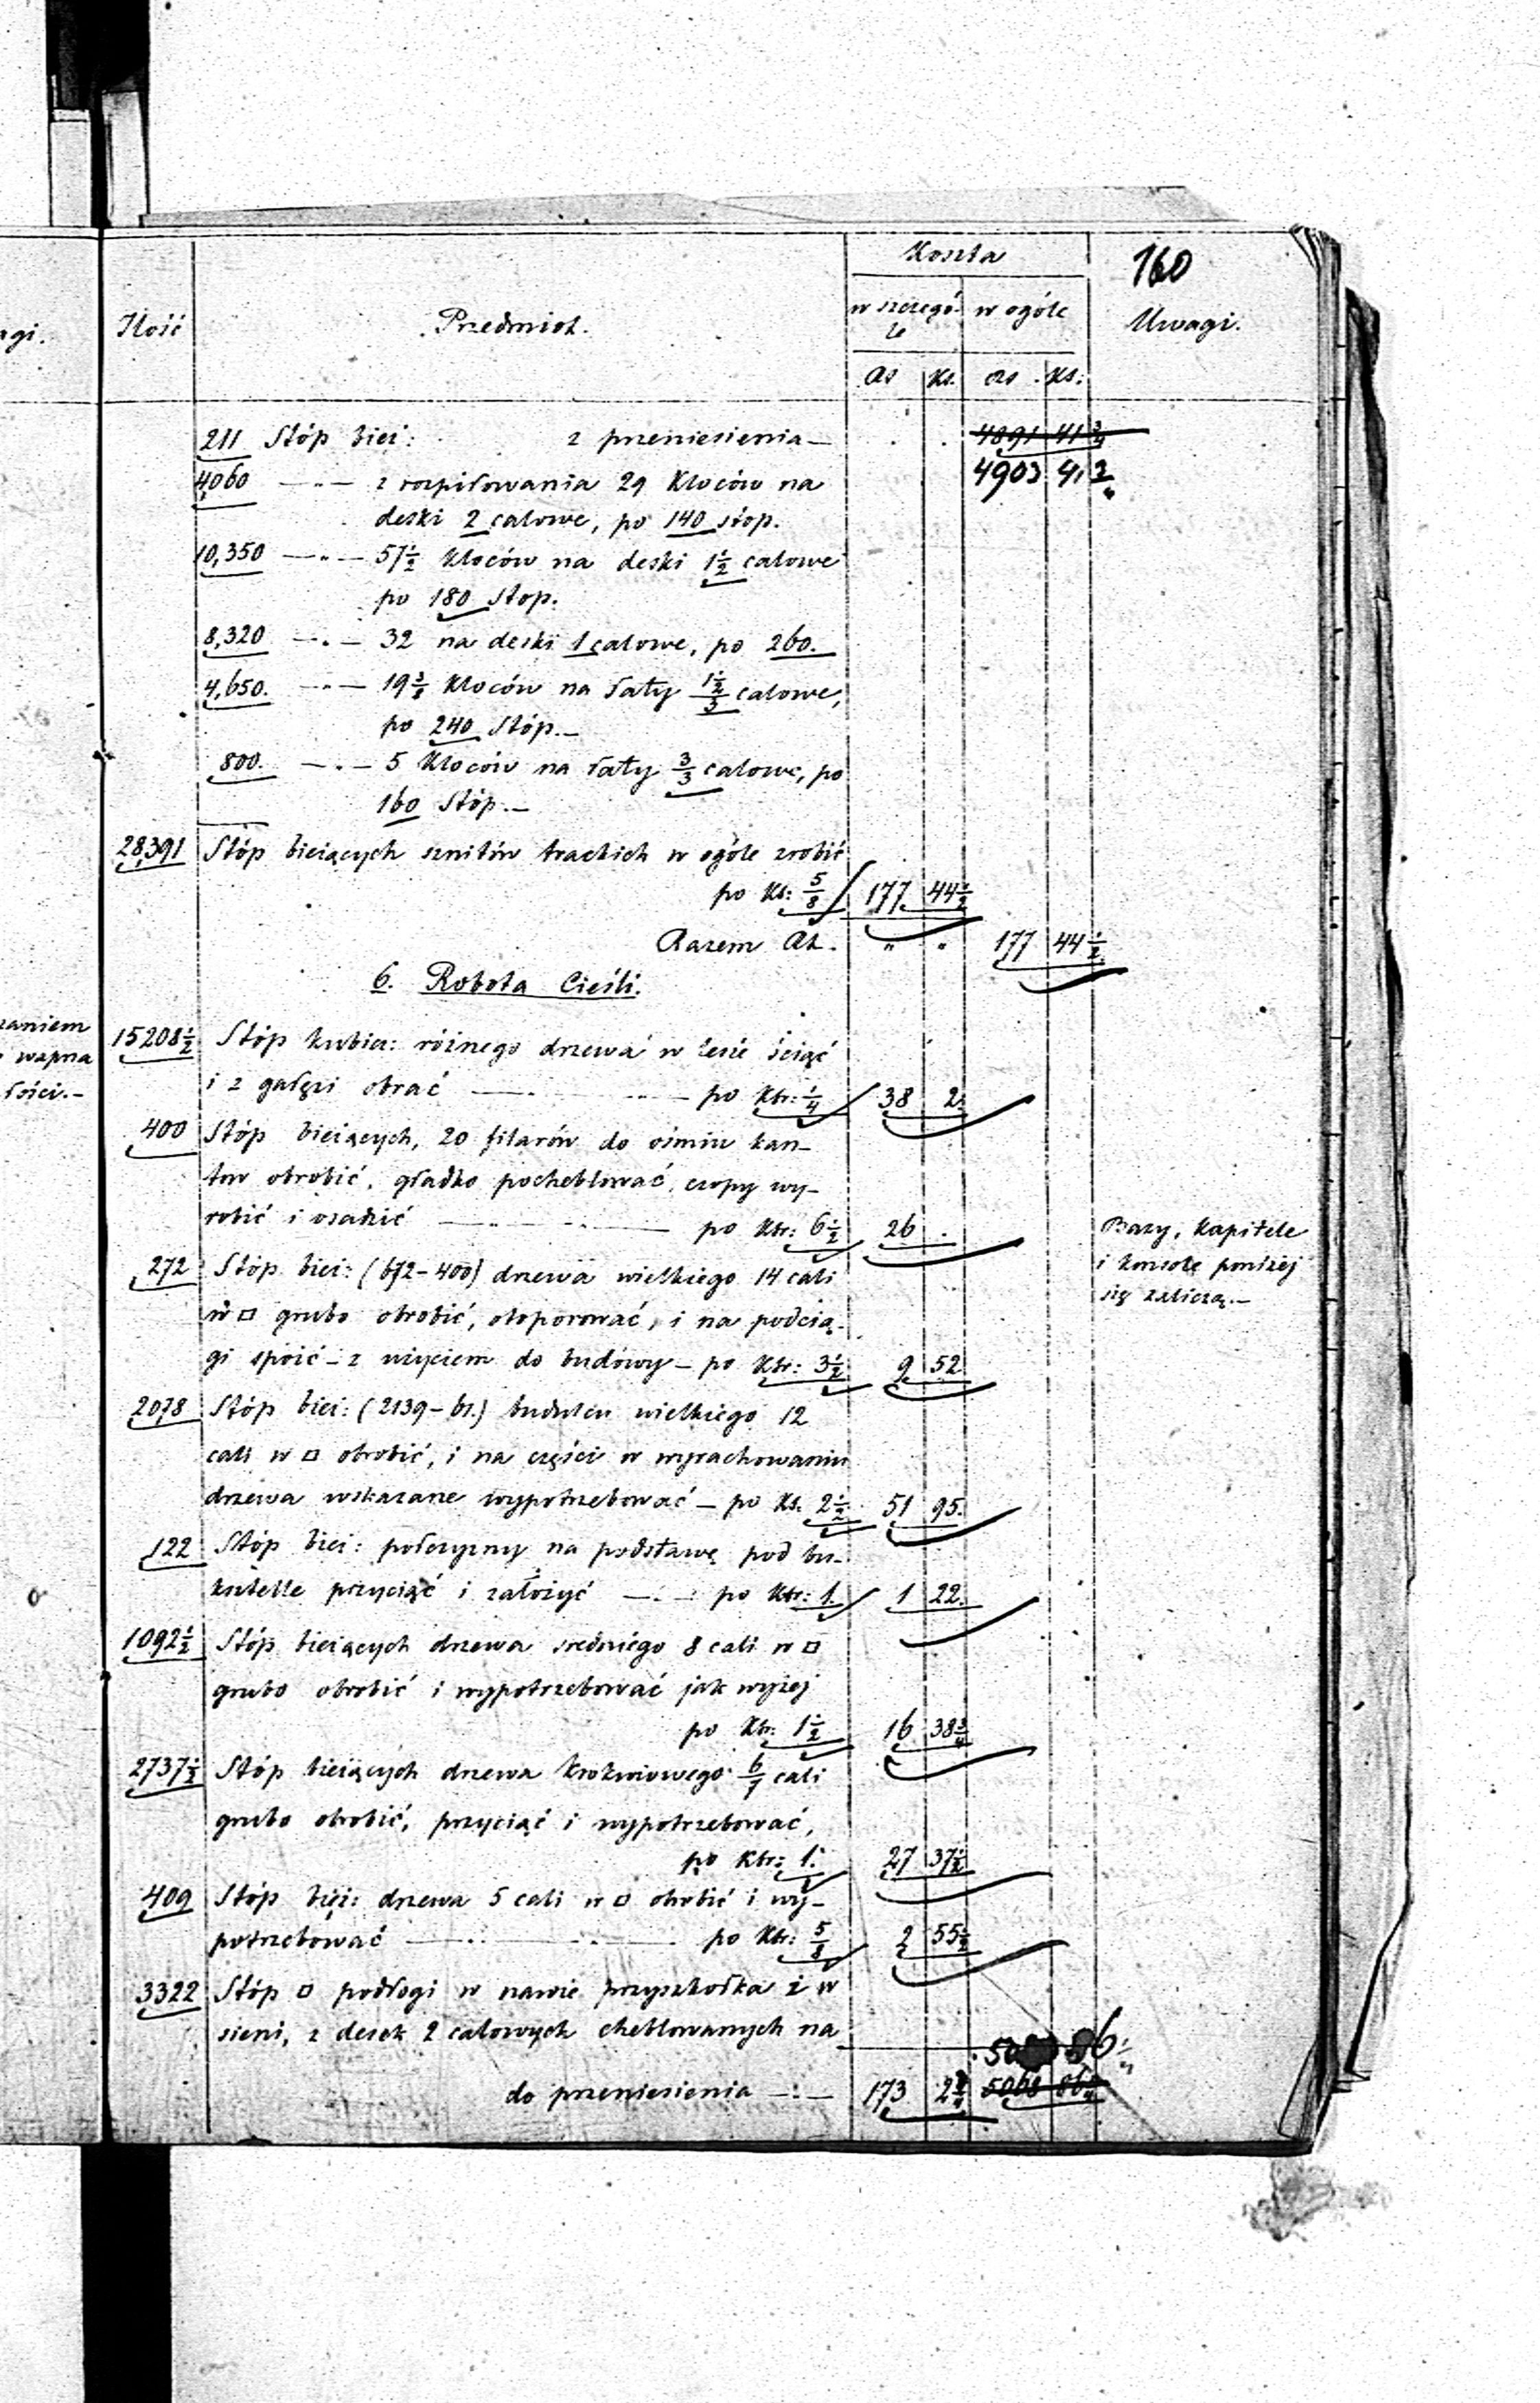 Koszta
160
agi.
Ilość
Przedmiot.
w szczegó-
le
w ogóle
Uwagi.
Rs Ks. Rs Ks:
211 Stóp bież: z przeniesienia — 4891 41 3/4
4060 — „ — z rozpiłowania 29 kloców na 4903 41 3/4
deski 2 calowe, po 140 stóp.
10,350 — „ — 57 1/2 kloców na deski 1 1/2 calowe
po 180 stop.
8,320 — „ — 32 na deski 1 calowe, po 260.
4,650. — „ — 19 3/8 kloców na łaty 1 1/2/3 calowe,
po 240 Stóp. —
800. — „ — 5 kloców na łaty 3/3 calowe, po
160 Stóp. —
28,391 Stóp bieżących sznitów trackich w ogóle zrobić
po Ks: 5/8 177 44 1/2
Razem Rs. „ „ 177 44 1/2
6. Robota Cieśli.
zaniem
wapna
łości. —
15208 1/2 Stóp kubicz: różnego drzewa w lesie ściąć
i z gałęzi obrać — po Kbr: 1/4 38 2.
400 Stóp bieżących, 20 filarów do ośmiu kan-
tów obrobić, gładko pocheblować, czopy wy-
robić i osadzić — po Kbr: 6 1/2 26 .
Bazy, kapitele
i konsole poniżej
się zaliczą. —
272 Stóp bież: (672 – 400) drzewa wielkiego 14 cali
w □ grubo obrobić, otoporować, i na podcią-
gi spoić – z użyciem do budowy – po Kbr: 3 1/2 9 52
2078 Stóp bież: (2139 – 61.) budulcu wielkiego 12
cali w □ obrobić, i na części w wyrachowaniu
drzewa wskazane wypotrzebować – po Ks. 2 1/2 51 95.
122 Stóp bież: połowizny na podstawę pod
przyciąć i założyć — po Kbr: 1. 1 22.
1092 1/2 Stóp bieżących drzewa średniego 8 cali w □
grubo obrobić i wypotrzebować jak wyżej
po Kbr: 1 1/2 16 38 3/4
2737 1/2 Stóp bieżących drzewa krokwiowego 6/7 cali
grubo obrobić, przyciąć i wypotrzebować,
po Kbr: 1. 27 37 1/2
409 Stóp bież: drzewa 5 cali w □ obrobić i wy-
potrzebować — po Kbr: 5/8 2 55 1/2
3322 Stóp □ podłogi w nawie przyszkołka i w
sieni, z desek 2 calowych cheblowanych na
86
do przeniesienia — 173 2 3/4 5068 86